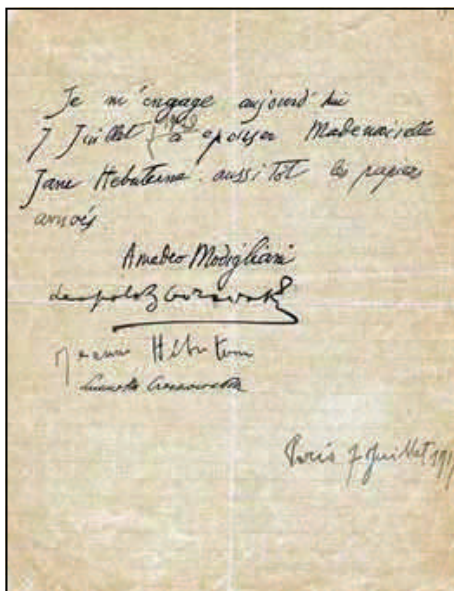 Je m'engage aujourd'hui
7 Juillet 1919 à epouser Mademoiselle
Jane Hebuterne aussitot les papiers
arrivés
Amedeo Modigliani
Leopold Zborowski
Jeanne Hébuterne
Paris 7 Juillet 191